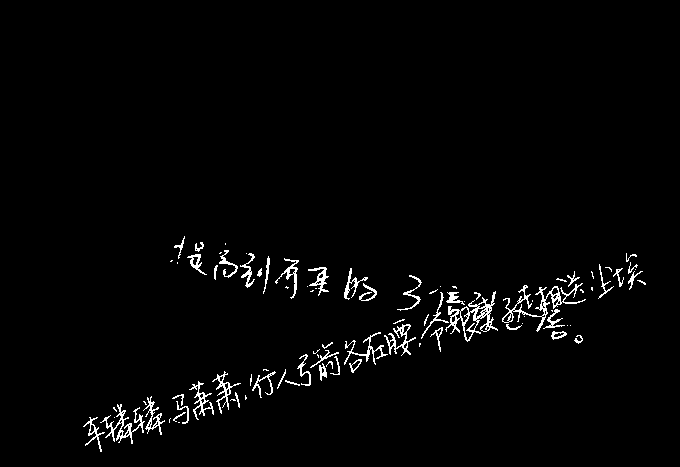 提高到原来的3倍
车辚辚，马萧萧，行人弓箭各在腰。爷娘妻子走相送，尘埃